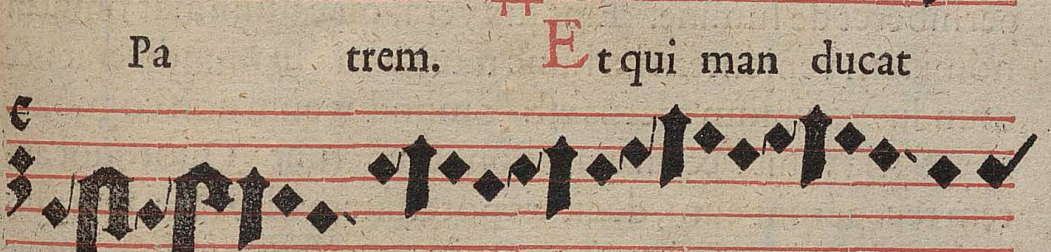 Pa trem. Et qui man ducat